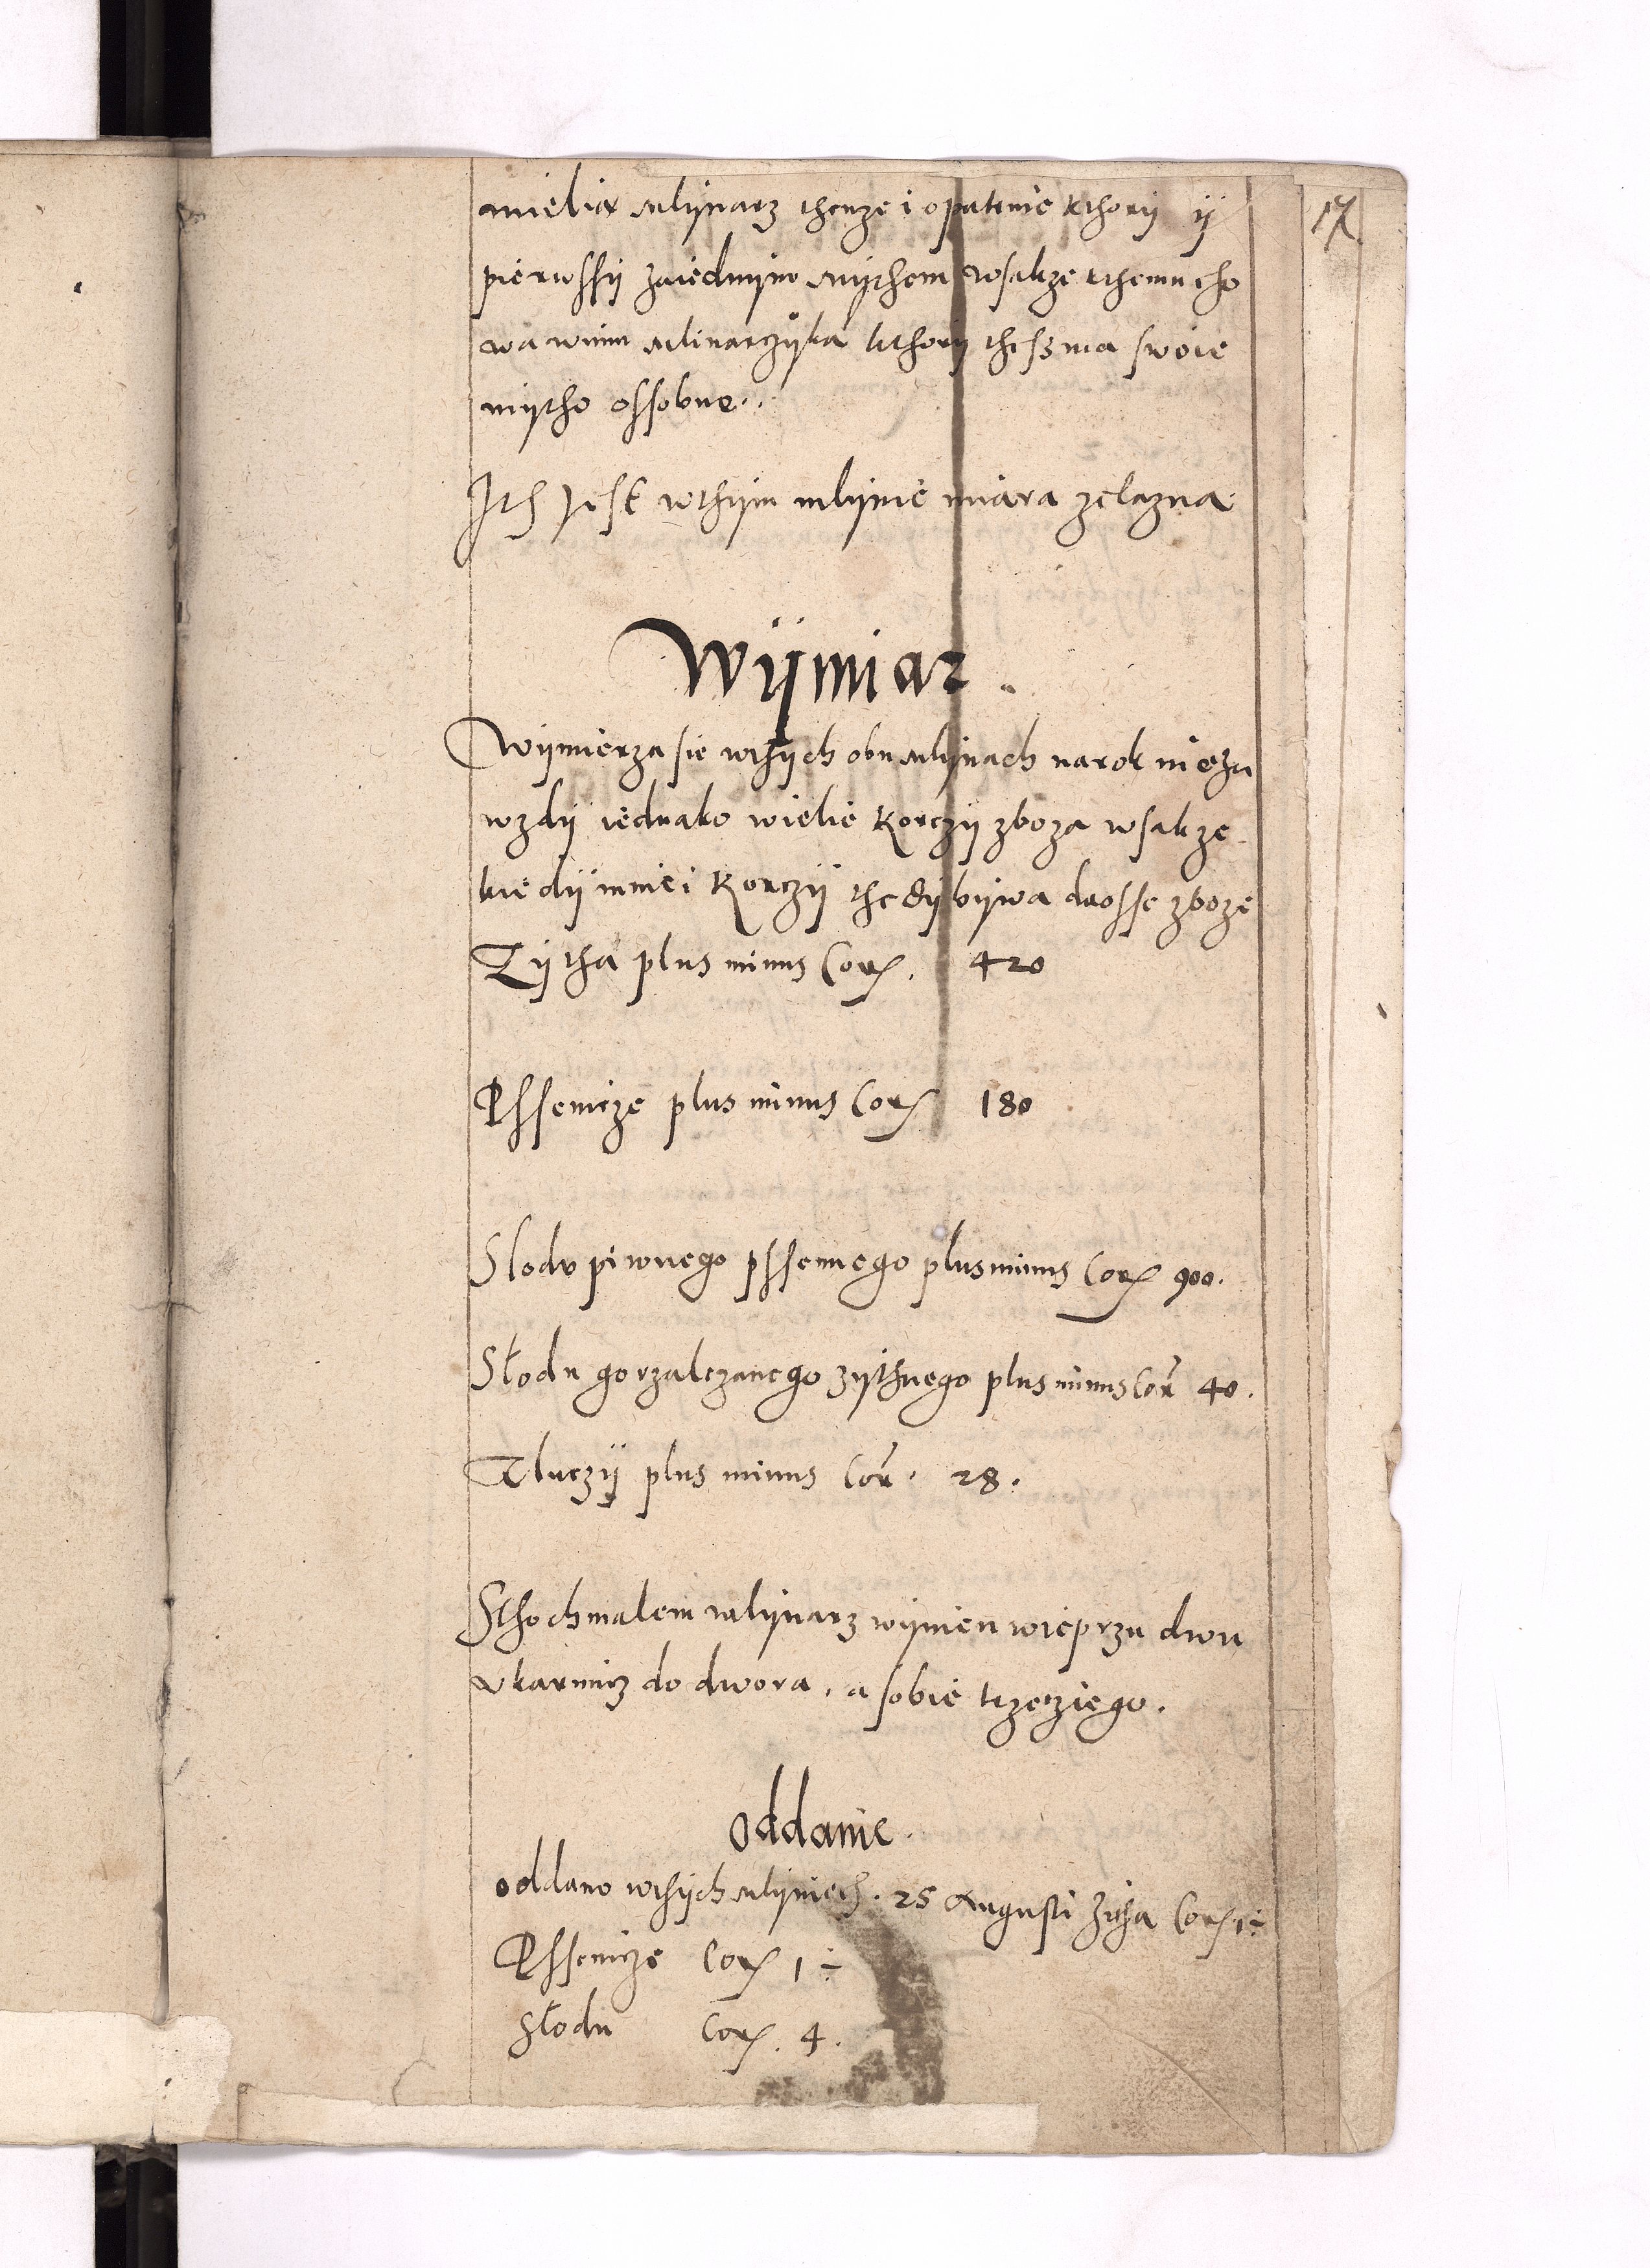 17
mielia mlynarz thenze i opatruie kthory y
pierwssy zaiednym mythem wsakze kthemu cho
wa wnim mlinarczyka kthory thesz ma swoie
mytho ossobne..
Ith Jest wthym mlynie miara zelazna
Wymiar.
Wymierza sie wthych obu mlynach narok nieza
wzdy iednako wielie korczy zboza wsakze
kiedy mniei korczy thedy bywa drosse zboze
Zytha plus minus Cor. 420
Pssenicze plus minus Cor 180
Slodu piwnego pssennego plus minus Cor 900.
Słodu gorzalczanego zythnego plus minus Cor 40.
Tluczy plus minus Cor. 28.
Sthochmalem mlynarz wynien wieprzu dwu
vkarmicz do dwora, a sobie trzecziego.
Oddanie.
oddano wthych mlyniech. 25 Augusti Zitha Cor 1÷
Pssenicze Cor 1 ÷
Słodu Cor. 4.